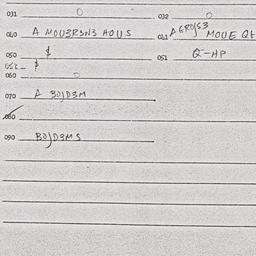 031 0 032 0
040 A MOU3R3N3 HOUS 041 AGROJS3 MOUE QH
050 $ 051 Q-HP
052 $
060 0
070 A BOJD3M
080
090 BOJD3MS